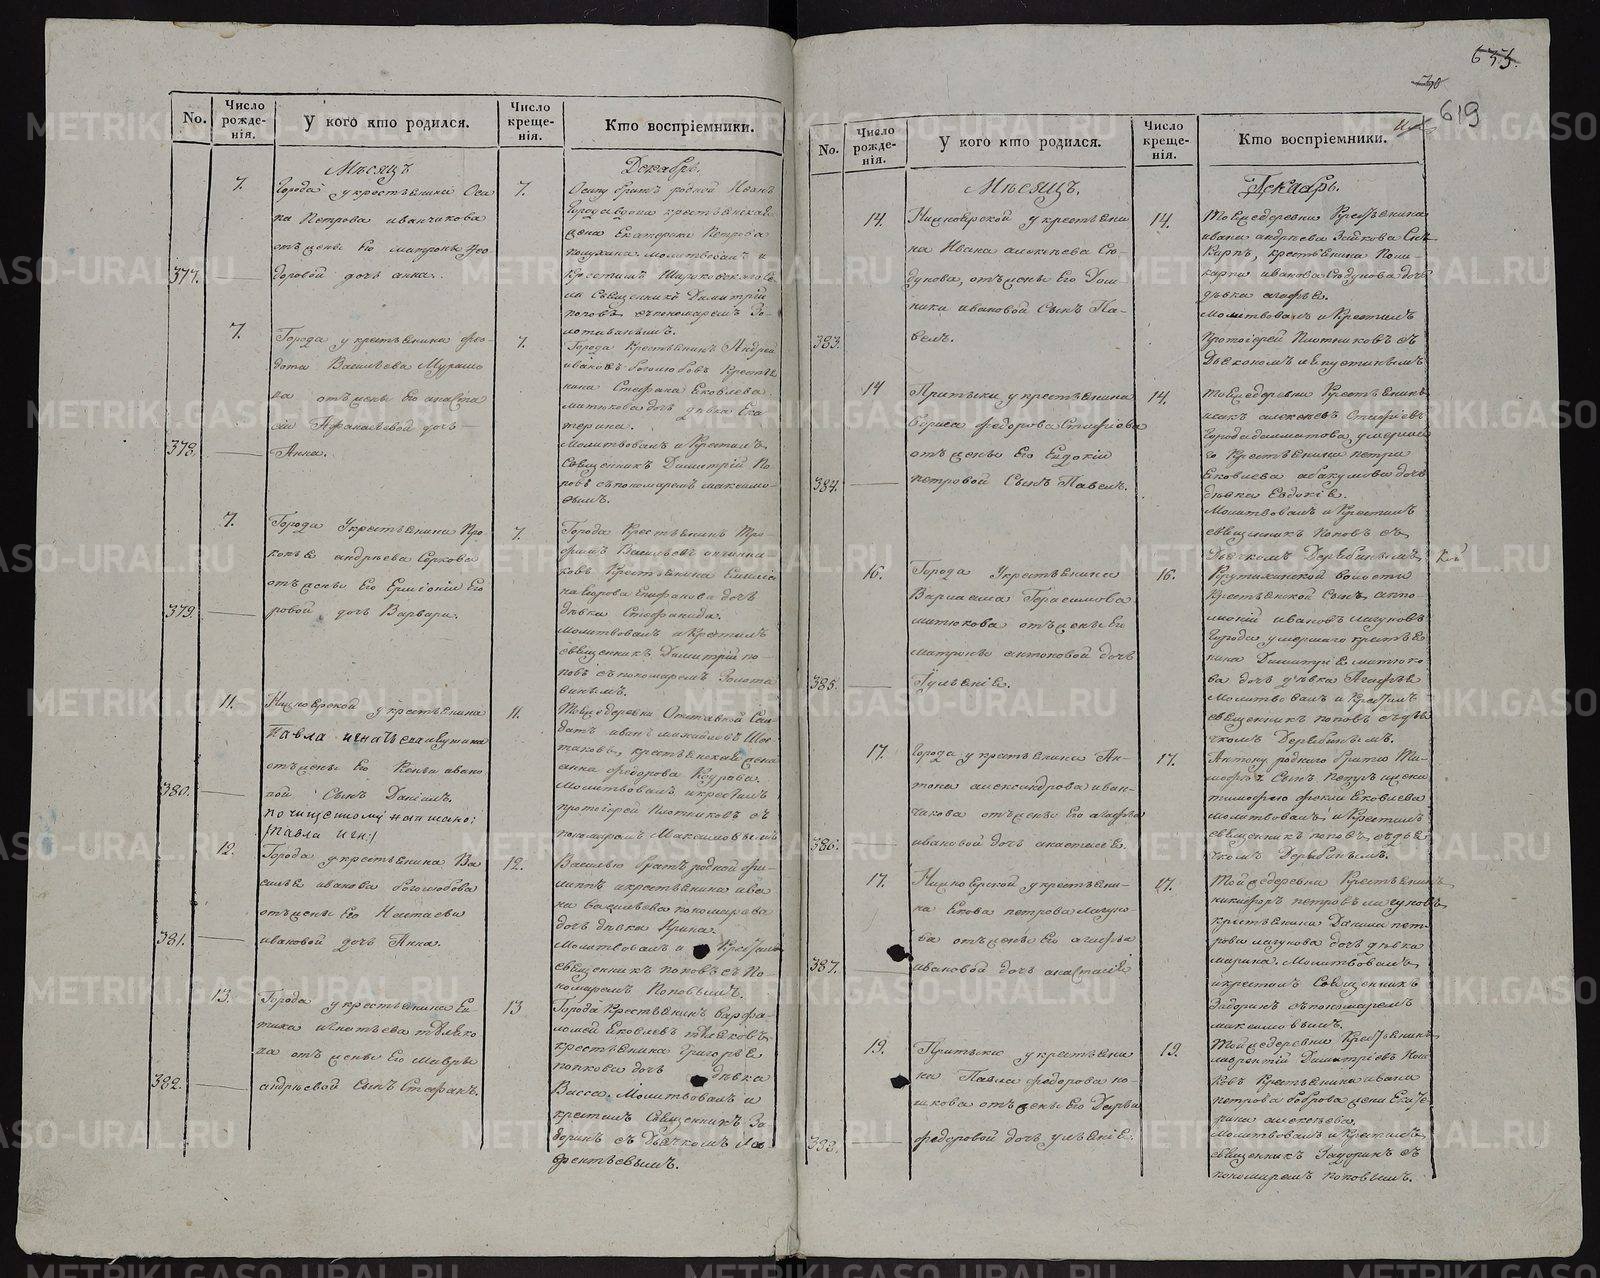 No.
Число рожде-нія.
У кого кто родился.
Число креще-нія.
Кто воспріемники.
Мѣсяцъ
Декабрь.
7.
Города у крестьянина Оси
па Петрова иванчикова
отъ жены Его матроны Ѳео
377.
доровой дочь анна.
7.
Осипу братъ родной Иванъ
жена Екатерина Петрова
молитвовалъ и
Крестилъ
Священникъ Димитрій
поповъ съ пономаремъ Зо-
лотавинымъ.
7.
Города у крестьянина Ѳео-
дота Васильева
ва отъ жены Его анаста
сіи Афанасьевой дочь
378.
Анна.
7.
Города Крестьянинъ Андрей
ивановъ боголюбовъ Кресть
нина Стефана Ековлева
митюкова дочь дѣвка Ека
терина.
Молитвовалъ и Крестилъ
Священникъ Димитрій По
повъ съ пономаремъ максимо-
вымъ.
7.
Города У крестьянина Про
андрѣева
отъ жены Его Ермионіи Его
379.
ровой дочь Варвара.
7.
Города Крестьянинъ Тро-
фимъ Васильевъ
ковъ Крестьянина
Епифанова дочь
дѣвка Стефанида.
Молитвовалъ и Крестилъ
священникъ Димитрій по-
повъ съ пономаремъ Золота
винымъ.
11.
Нижнеярской у крестьянина
Павла игнатьева
отъ жены Его ивано
380.
вой Сынъ Даніилъ.
по чищенному написано:
/Павла игн:/
11.
Тойжедеревни Отставной Сол
датъ иванъ михайловъ Шос-
таковъ, крестьянская жена
анна федорова
Молитвовалъ и крестилъ
протоіерей Плотниковъ съ
пономаремъ Максимовымъ
12.
Города у крестьянина Ва
силья иванова боголюбова
отъ жены Его Натальи
381.
ивановой дочь Анна.
12.
Василью братъ родной фи-
липпъ и крестьянина ива
на васильева пономарева
дочь дѣвка Ирина.
Молитвовалъ и Крестилъ
священникъ поповъ съ По-
номаремъ Поповымъ.
13.
Города у крестьянина Ев-
игнатьева
ва отъ жены Его Мавры
382.
андрѣевой Сынъ Стефанъ.
13
Города Крестьянинъ варфа-
ломей Ековлевъ
крестьянина Григорья
попкова дочь дѣвка
Васса. Молитвовалъ и
крестилъ Священникъ За
доринъ съ Дьячкомъ Ла
врентьевымъ.
635.
619
No.
Число рожде-нія.
У кого кто родился.
Число креще-нія.
Кто воспріемники.
Мѣсяцъ.
Декабрь.
14.
Нижнеярской у крестьяни
на Ивана алексѣева Сю-
дунова, отъ жены Его Дом-
ники ивановой Сынъ Па-
383.
велъ.
14.
Тоежедеревни Крестьянина
ивана андрѣева Зайкова Сынъ
Карпъ, крестьянина Поли-
карпа иванова Сюдунова дочь
дѣвка агафья.
Молитвовалъ и Крестилъ
Протоіерей Плотниковъ съ
Дьякономъ
14
Притыки у крестьянина
бориса федорова Стафіева
отъ жены Его Евдокіи
384.
петровой Сынъ Павелъ.
14.
Тоежедеревни Крестьянинъ
алексѣевъ Стафіевъ
Города далматова, умерша
го Крестьянина петра
Ековлева абакумова дочь
дѣвка Евдокія.
Молитвовалъ и Крестилъ
священникъ Поповъ съ
Дьячкомъ Дерябинымъ.
16.
Города У крестьянина
Варлаама Герасимова
митюкова отъ жены Его
матроны антоновой дочь
385.
Гульенія.
16.
Крутихинской волости
Крестьянской Сынъ аппо-
лоній ивановъ лагуновъ
Города, умершаго крестья
нина Димитрія митюко-
ва дочь дѣвка Агафья
Молитвовалъ и Крестилъ
священникъ поповъ съ дья
чкомъ Дерябинымъ.
17.
Города у крестьянина Ан-
тона александрова иван-
чикова отъ жены Его агафьи
386.
ивановой дочь анастасія.
17.
Антону роднаго брата Ти-
мофѣя Сынъ Петръ жена
тимофею фекла Ековлева
молитвовалъ и Крестилъ
священникъ поповъ, съ дья
чкомъ Дерябинымъ.
17.
Нижнеярской у крестьяни-
на Екова петрова лагуно
ва отъ жены Его агафьи
387.
ивановой дочь анастасія
17.
Тойжедеревни Крестьянинъ
никифоръ петровъ лагуновъ
крестьянина Данила пет-
рова лагунова дочь дѣвка
марина. Молитвовалъ
и крестилъ Священникъ
Задоринъ съ пономаремъ
максимовымъ.
19.
Притыки у крестьяни
на Павла федорова по-
пкова отъ жены Его Дарьи
388.
федоровой дочь ульянія.
19.
Тойжедеревни Крестьянинъ
лаврентій Димитріевъ
ковъ Крестьянина ивана
петрова боброва жена Екате
рина алексѣева.
Молитвовалъ и Крестилъ
священникъ Задоринъ съ
пономаремъ Поповымъ.
METRIKI.GASO-URAL.RU